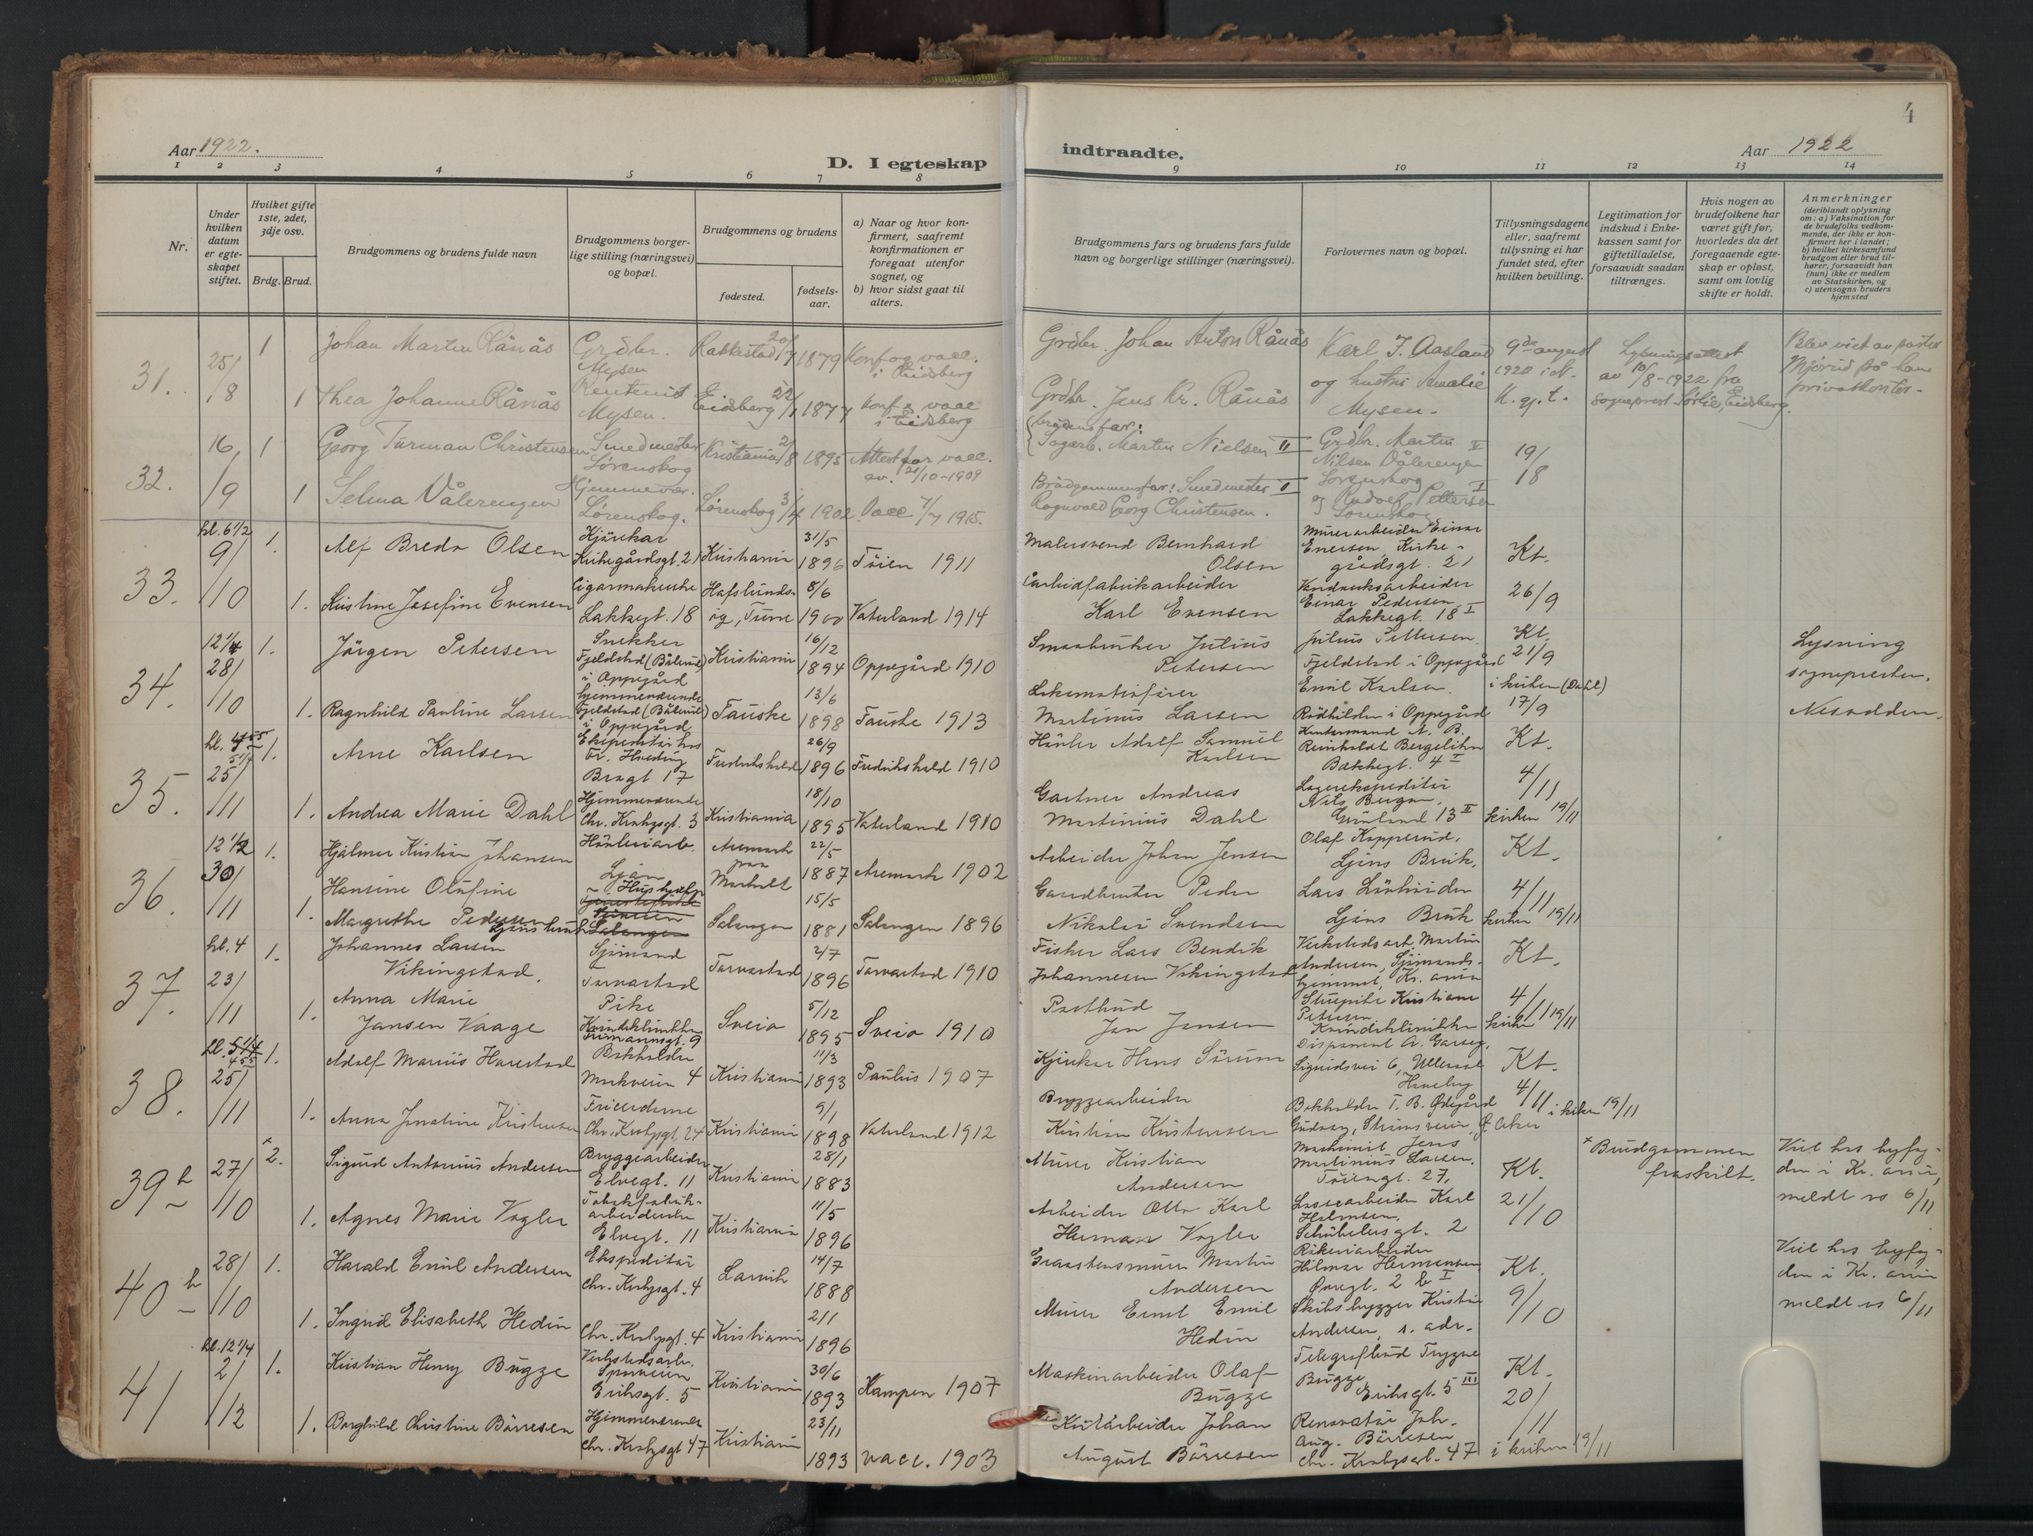 Aar 1922.
D. I egteskap
indtraadte.
Aar 1922
4
1 2 3 4 5 6 7 8 9 10 11 12 13 14
Nr.
Under hvilken datum er egteskapet stiftet.
Hvilket gifte 1ste, 2det, 3dje osv.
Brdg. Brud.
Brudgommens og brudens fulde navn
Brudgommens borgerlige stilling (næringsvei) og bopæl.
Brudgommens og brudens
fødested.
fødselsaar.
a) Naar og hvor konfirmert, saafremt konfirmationen er foregaat utenfor sognet, og
b) hvor sidst gaat til alters.
Brudgommens fars og brudens fars fulde navn og borgerlige stillinger (næringsvei).
Forlovernes navn og bopæl.
Tillysningsdagene eller, saafremt tillysning ei har fundet sted, efter hvilken bevilling.
Legitimation for indskud i Enkekassen samt for giftetilladelse, forsaavidt saadan tiltrænges.
Hvis nogen av brudefolkene har været gift før, hvorledes da det foregaaende egteskap er opløst, samt om lovlig skifte er holdt.
Anmerkninger
(deriblandt oplysning om: a) Vaksination for de brudefolks vedkommende, der ikke er konfirmert her i landet; b) hvilket kirkesamfund brudgom eller brud tilhører, forsaavidt han (hun) ikke er medlem av Statskirken, og c) utensogns bruders hjemsted
31. 25/8 1 Johan Martin Rånås Grdbr. Mysen Rakkestad 20/7 1879 Konf og vacc. i Eidsberg
Grdbr. Johan Anton Rånås Karl J. Aasland og hustru Amalie Mysen.
9de august 1920 i N. K. gj. t.
Lysningsattest av 10/8-1922 fra sogneprest Sørlie, Eidsberg.
Blev viet av pastor Mjørud på hans privatkontor.
1 Thea Johanne Rånås Mysen. Eidsberg 1877 Konf & vacc i Eidsberg
Grdbr. Jens Kr. Rånås
32. 16/9 1 Georg Turman Christensen Smedmester Lørenskog Kristiania 2/8 1895 Attest for vacc. av. 21/10-1909
Brudens far: Sagarb. Martin Nielsen II
Grdbr. Martin Nilsen Vålerengen Lørenskog
19/8
1 Selma Vålerengen Hjemmevær. Lørenskog. Lørenskog 3/4 1902 Vacc 7/7 1915.
Brudgommens far: Smedmester Ragnvald Georg Christensen.
og Rudolf Pettersen Lørenskog
33. kl. 6 1/2 9/10 1. Alf Bredo Olsen Kjørekar Kirkegårdsgt. 21 Kristiania 31/5 1896 Tøien 1911
Malersvend Bernhard Olsen Murerarbeider Einar Evensen, Kirkegårdsgt. 21 Kt.
1. Kristine Josefine Evensen Lakkegt. 18 Hafslundsøy, Tune 8/6 1900 Vaterland 1914
Karl Evensen Einar Pedersen Lakkegt. 18 I 26/9
34. 12 1/4 28/10 1. Jörgen Petersen Snekker Fjeldstad (Bålerud) i Oppegård Kristiania 16/12 1894 Oppegård 1910
Smaabruker Julius Petersen Julius Pettersen. Fjeldstad i Oppegård Kt. 21/9
Lysning sognepresten. Nesodden.
1. Ragnhild Pauline Larsen Hjemmeværende Fjeldstad (Bålerud) i Oppegård Fauske 13/6 1898 Fauske 1913
Lokomotivfører Martinius Larsen Emil Karlsen. i Oppegård i kirken (Dahl) 17/9
35. 25/11 1. Arne Karlsen Brogt 17 Fredrikshald 26/9 1896 Fredrikshald 1910
Adolf Samuel Karlsen Reinholdt Bakkegt. 4 II Kt.
1. Andrea Marie Dahl Hjemmeværende Chr. Krohgsgt. 3 Kristiania 18/10 1895 Vaterland 1910
Gartner Andreas Martinius Dahl Lagerekspeditør Nils Bergan, Grønland 13 II 4/11 kirken 19/11
36. 12 1/2 30/11 1. Hjalmar Kristian Johansen Ljan Aremark 22/5 1887 Aremark 1902
Arbeider Johan Jensen Olaf Kopperud, Ljans Bruk, Kt.
1. Hansine Olufine Margrethe Pedersen Salangen 15/5 1881 Salangen 1896
Gaardbruker Peder Nikolai Svendsen Lars Ljans Bruk 4/11 kirken 19/11
37. kl. 4 23/11 1. Johannes Larsen Vikingstad. Sjømand Torvastad Torvastad 2/7 1896 Torvastad 1910
Fisker Lars Bendik Johannesen Vikingstad Verkstedsarb. Martin Andersen, Sjømandshjemmet, Kr.ania Kt.
1. Anna Marie Jansen Vaage Pike Kvindeklinikken Sveio 5/12 1895 Sveio 1910
Postbud Jan Jansen Stuepike Kristiane Petersen Kvindeklinikken 4/11 kirken 19/11
38. 25/11 1. Adolf Marius Harestad Bokholder Markveien 4 Kristiania 11/3 1893 Paulus 1907
Kjørekar Hans Sørum Disponent A. Sigurdsvei 6, Ullevaal Haveby Kt.
1. Anna Jonatine Kristensen Chr. Krohgsgt. 24 Kristiania 9/1 1898 Vaterland 1912
Bryggearbeider Kristian Kristensen Bokholder T. B. Ødegård 4/11 i kirken 19/11
39 b 27/10 2. Sigurd Antonius Andersen Bryggearbeider Elvegt. 11 Kristiania 28/1 1883
Murer Kristian Andersen Maskinist Jens Martinius Larsen, Tøiengt. 27, Kt.
× Brudgommen fraskilt.
Viet hos byfogden i Kr.ania, meldt os 6/11
1. Agnes Marie Vogler Tobakfabrikarbeiderske Elvegt. 11 Kristiania 11/5 1896
Arbeider Otto Karl Herman Vogler Lossearbeider Karl Schübelersgt. 2 21/10
40 b 28/10 1. Harald Emil Andersen Ekspeditør Chr. Krohgsgt. 4 Larvik 14/7 1888
Graastensmurer Martin Andersen Hilmar Hermansen Øvregt. 2 b I Kt.
Viet hos byfogden i Kr.ania meldt os 6/11
1. Ingrid Elisabeth Hedin Chr. Krohgsgt. 4 Kristiania 2/1 1896
Murer Ernst Emil Hedin Skibsbygger Kristian Andersen, s. adr. 9/10
41 kl. 12 1/4 2/12 1. Kristian Henry Bugge Verkstedsarb. Sporveien Eriksgt. 5 Kristiania 30/6 1893 Kampen 1907
Maskinarbeider Olaf Bugge Telegrafbud Trygve Bugge Eriksgt. 5 III Kt.
1. Borghild Christine Börresen Hjemmeværende Chr. Krohgsgt 47 Kristiania 23/11 1893 vacc. 1903
Johan August Börresen Renovatør Joh. Aug. Börresen Chr. Krohgsgt. 47 20/11 i kirken 19/11